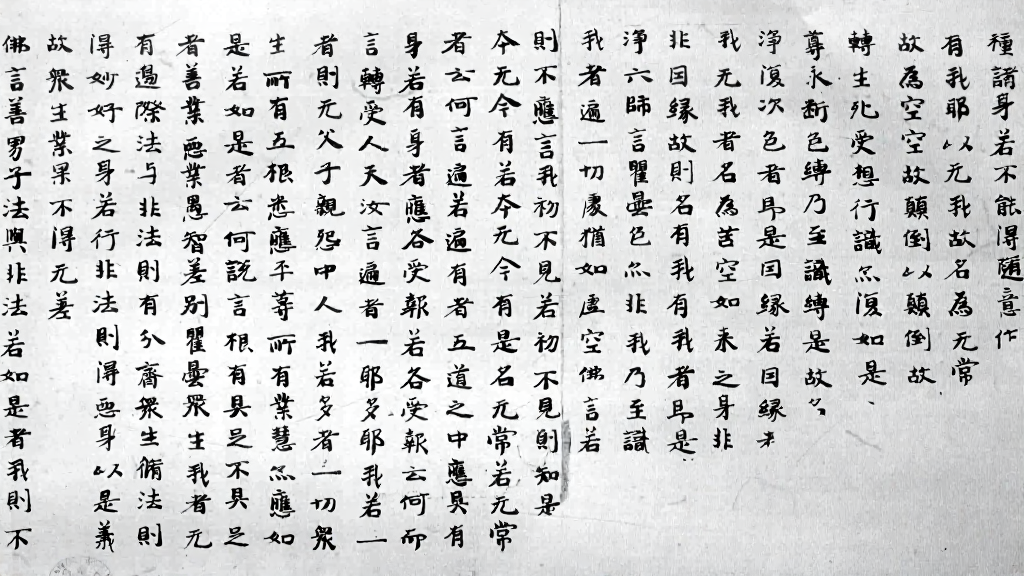 種諸身若不能得随意作
有我耶以无我故名為无常
故為空空故顛倒以顛倒故
轉生死受想行識亦復如是
尊永斷色縛乃至識縛是故名
淨復次色者即是因縁若因縁未
我无我者名為苦空如来之身非
非因縁故則名有我有我者即是
淨六師言瞿曇色亦非我乃至識
我者遍一切處猶如虛空佛言若
則不應言我初不見若初不見則知是
夲无今有若夲无今有是名无常若无常
者云何言遍若遍有者五道之中應具有
身若有身者應各受報若各受報云何而
言轉受人天汝言遍者一耶多耶我若一
者則无父子親怨中人我若多者一切衆
生所有五根悉應平等所有業慧亦應如
是若如是者云何說言根有具足不具足
者善業惡業愚智差別瞿曇衆生我者无
有邊際法与非法則有分齊衆生脩法則
得妙好之身若行非法則得惡身以是義
故衆生業果不得无差
佛言善男子法與非法若如是者我則不